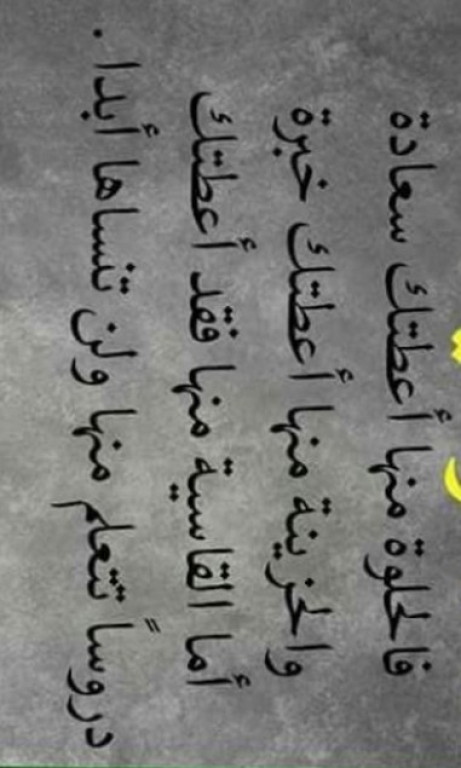 فالحلوة منها أعطتك سعادة
والحزينة منها أعطتك خبرة
أما القاسية منها فقد أعطتك
دروساً تتعلم منها ولن تنساها أبدا .